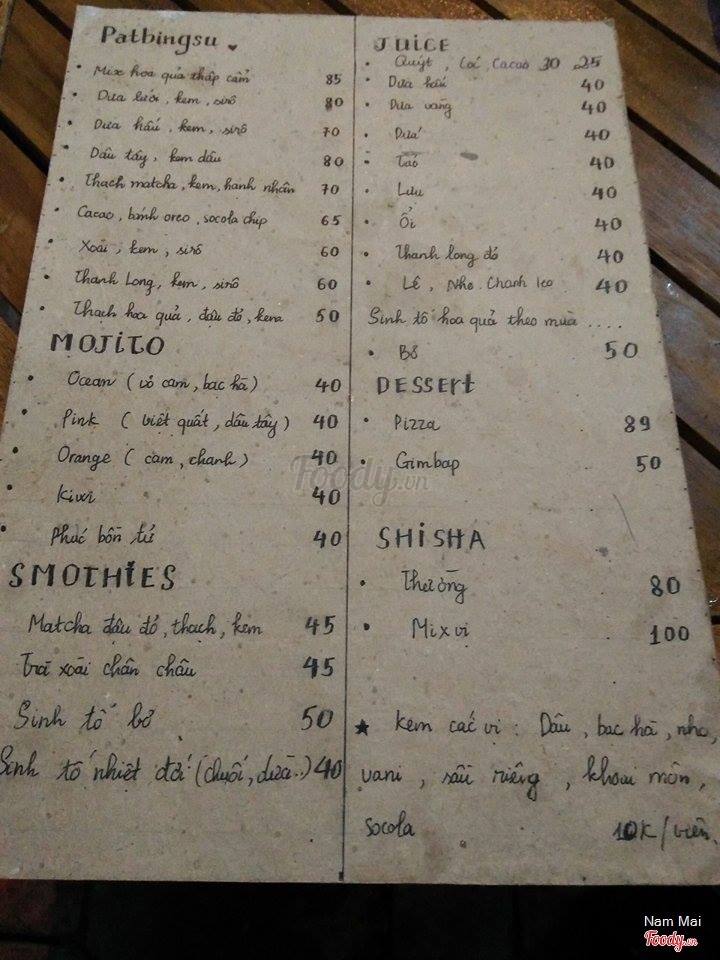 Patbingsu
Mix hoa quả thập cẩm 85
Dưa lưới, kem, sirô 80
Dưa hấu, kem, sirô 70
Dâu tây, kem dâu 80
Thạch matcha, kem, hạnh nhân 70
Cacao, bánh oreo, socola chip 65
Xoài, kem, sirô 60
Thanh Long, kem, sirô 60
Thạch hoa quả, đậu đỏ, kem 50
MOJITO
Ocean (vỏ cam, bạc hà) 40
Pink (việt quất, dâu tây) 40
Orange (cam, chanh) 40
Kiwi 40
Phúc bồn tử 40
SMOTHIES
Matcha đậu đỏ, thạch, kem 45
Trà xoài chân châu 45
Sinh tố bơ 50
Sinh tố nhiệt đới (chuối, dứa..) 40
JUICE
Quýt, Cóc, Cacao 30, 25
Dưa hấu 40
Dưa vàng 40
Dứa 40
Táo 40
Lựu 40
Ổi 40
Thanh long đỏ 40
Lê, Nho, Chanh leo 40
Sinh tố hoa quả theo mùa ....
Bơ 50
DESSERT
Pizza 89
Gimbap 50
SHISHA
Thường 80
Mix vị 100
★ Kem các vị: Dâu, bạc hà, nho,
vani, sầu riêng, khoai môn,
socola 10K/viên
Foody.vn
Nam Mai
Foody.vn